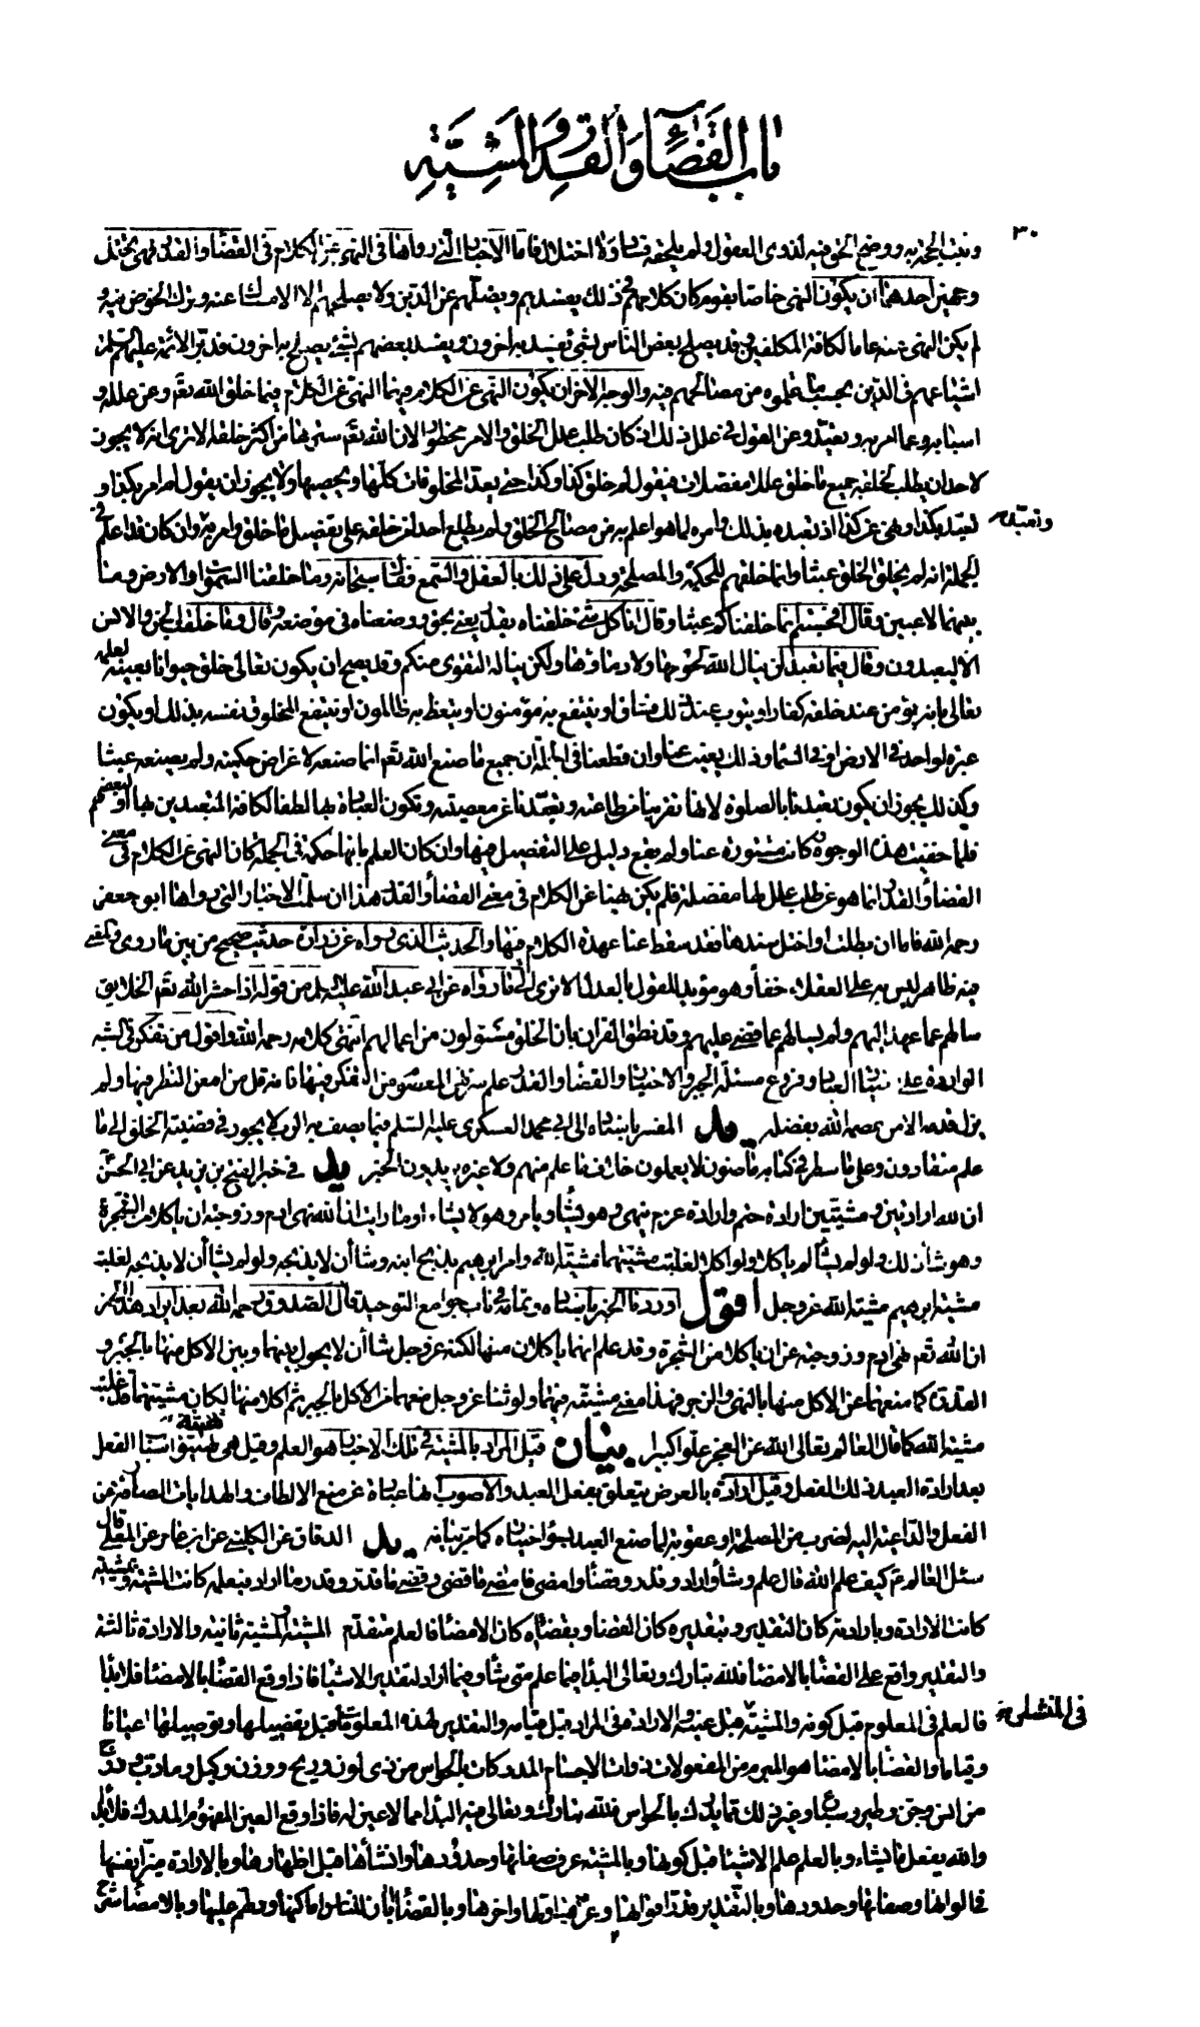 باب القضاء والقدر والمشيّة
٣٠
وثبت الحجة به ووضح الحق فيه لذوى العقول ولم يلحقه فساد ولا اختلال فاما الاخبار التى رواها فى النهى عن الكلام فى القضاء والقدر فهى تحتمل
وجهين احدهما ان يكون النهى خاصا بقوم كان كلامهم فى ذلك يفسدهم ويضلهم عن الدين ولا يصلحهم الا الامساك عنه وترك الخوض فيه و
لم يكن النهى عنه عاما لكافة المكلفين وقد يصلح بعض الناس بشئ يفسد به اخرون ويفسد بعضهم بشئ يصلح به اخرون فدبر الائمة عليهم السلم
اشياعهم فى الدين بحسب ما علموه من مصالحهم فيه والوجه الاخر ان يكون النهى عن الكلام فيهما النهى عن الكلام فيما خلق الله تعم وعن علله و
اسبابه وعما امر به وتعبد وعن القول فى علل ذلك اذ كان طلب علل الخلق والامر محظورا لان الله تعم سترها من اكثر خلقه الا ترى انه لا يجوز
لاحد ان يطلب لخلقه جميع ما خلق عللا مفصلات فيقول لم خلق كذا وكذا حتى يعد المخلوقات كلها ويحصيها ولا يجوز ان يقول لم امر بكذا و
وتعبد
تعبد بكذا ونهى عن كذا اذ تعبده بذلك وامره لما هو اعلم به من مصالح الخلق ولم يطلع احدا من خلقه على تفصيل ما خلق وامر به وان كان قد اعلم فى
الجملة انه لم يخلق الخلق عبثا وانما خلقهم للحكمة والمصلحة ودل على ذلك بالعقل والسمع فقال سبحانه وما خلقنا السموات والارض وما
بينهما لاعبين وقال افحسبتم انما خلقناكم عبثا وقال انا كل شئ خلقناه بقدر يعنى بحق ووضعناه فى موضعه وقال وما خلقت الجن والانس
الا ليعبدون وقال فيما تعبد لن ينال الله لحومها ولا دماؤها ولكن يناله التقوى منكم وقد يصح ان يكون تعالى خلق حيوانا بعينه لعلمه
تعالى بانه يؤمن عند خلقه كفار او يتوب عند ذلك فساق او ينتفع به مؤمنون او يتعظ به ظالمون او ينتفع المخلوق نفسه بذلك او يكون
عبرة لواحد فى الارض او فى السماء وذلك يغيب عنا وان قطعنا فى الجملة ان جميع ما صنع الله تعم انما صنعه لاغراض حكيمة ولم يصنعه عبثا
وكذلك يجوز ان يكون تعبدنا بالصلوة لانها تقربنا من طاعته وتبعدنا عن معصيته وتكون العبادة بها لطفا لكافة المتعبدين بها او لبعضهم
فلما خفيت هذه الوجوه كانت مستورة عنا ولم يقع دليل على التفصيل فيها وان كان العلم بانها حكمة فى الجملة كان النهى عن الكلام فى معنى
القضاء والقدر انما هو عن طلب علل لها مفصلة فلم يكن نهيا عن الكلام فى معنى القضاء والقدر هذا ان سلمت الاخبار التى رواها ابو جعفر
رحمه الله فاما ان بطلت او اختل سندها فقد سقط عنا عهدة الكلام فيها والحديث الذى رواه عن زرارة حديث صحيح من بين ما روى والمعنى
فيه ظاهر ليس به على العقلاء خفاء وهو مؤيد للقول بالعدل الا ترى الى ما رواه عن ابى عبد الله عليه السلم من قوله اذا حشر الله تعم الخلايق
سالهم عما عهد اليهم ولم يسالهم عما قضى عليهم وقد نطق القران بان الخلق مسئولون عن اعمالهم انتهى كلامه رحمه الله واقول من تفكر فى الشبه
الواردة على اختيار العباد وفروع مسئلة الجبر والاختيار والقضاء والقدر علم سر نهى المعصوم عن التفكر فيها فانه قل من امعن النظر فيها ولم
يزل قدمه الا من عصمه الله بفضله يد المفسر باسناده الى ابى محمد العسكرى عليه السلم فيما يصف به الرب لا يجور فى قضيته الخلق الى ما
علم منقادون وعلى ما سطر فى كتابه ماضون لا يعملون خلاف ما علم منهم ولا غيره يريدون الخبر يد فى خبر الفتح بن يزيد عن ابى الحسن
ان لله ارادتين ومشيتين ارادة حتم وارادة عزم ينهى وهو يشاء ويامر وهو لا يشاء اوما رايت ان الله نهى ادم وزوجته ان ياكلا من الشجرة
وهو شاء ذلك ولو لم يشأ لم ياكلا ولو اكلا لغلبت مشيتهما مشية الله وامر ابرهيم بذبح ابنه وشاء ان لا يذبحه ولو لم يشأ ان لا يذبحه لغلبت
مشية ابرهيم مشية الله عز وجل اقول اوردنا الخبر باسناده وتمامه فى باب جوامع التوحيد قال الصدوق رحمه الله بعد ايراد هذا الخبر
ان الله تعم نهى ادم وزوجته عن ان ياكلا من الشجرة وقد علم انهما ياكلان منها لكنه عز وجل شاء ان لا يحول بينهما وبين الاكل منها بالجبر و
القدرة كما منعهما عن الاكل منها بالنهى والزجر فهذا معنى مشيته فيهما ولو شاء عز وجل منعهما من الاكل بالجبر ثم اكلا منها لكان مشيتهما قد غلبت
مشية الله كما قال العالم تعالى الله عن العجز علوا كبيرا بيان قيل المراد بالمشية فى تلك الاخبار هو العلم وقيل هى تهيئة اسباب الفعل
بعد ارادة العبد ذلك الفعل وقيل ارادة بالعرض يتعلق بفعل العبد والاصوب انها عبارة عن منع الالطاف والهدايات الصارفة عن
الفعل والداعية اليه لضرب من المصلحة او عقوبة لما صنع العبد بسوء اختياره كما مر بيانه يد الدقاق عن الكلينى عن ابن عامر عن المعلى قال
سئل العالم ع كيف علم الله قال علم وشاء واراد وقدر وقضى وامضى فامضى ما قضى وقضى ما قدر وقدر ما اراد فبعلمه كانت المشية وبمشيته
كانت الارادة وبارادته كان التقدير وبتقديره كان القضاء وبقضائه كان الامضاء فالعلم متقدم المشية والمشية ثانية والارادة ثالثة
والتقدير واقع على القضاء بالامضاء فلله تبارك وتعالى البداء فيما علم متى شاء وفيما اراد لتقدير الاشياء فاذا وقع القضاء بالامضاء فلا بداء
فالعلم فى المعلوم قبل كونه والمشية قبل عينه والارادة فى المراد قبل قيامه والتقدير لهذه المعلومات قبل تفصيلها وتوصيلها عيانا
وقياما والقضاء بالامضاء هو المبرم من المفعولات ذوات الاجسام المدركات بالحواس من ذى لون وريح ووزن وكيل وما دب ودرج
من انس وجن وطير وسباع وغير ذلك مما يدرك بالحواس فلله تبارك وتعالى فيه البداء مما لا عين له فاذا وقع العين المفهوم المدرك فلا بداء
والله يفعل ما يشاء وبالعلم علم الاشياء قبل كونها وبالمشية عرف صفاتها وحدودها وانشأها قبل اظهارها وبالارادة ميز انفسها
فى الوانها وصفاتها وحدودها وبالتقدير قدر اقواتها وعرف اولها واخرها وبالقضاء ابان للناس اماكنها ودلهم عليها وبالامضاء شرح